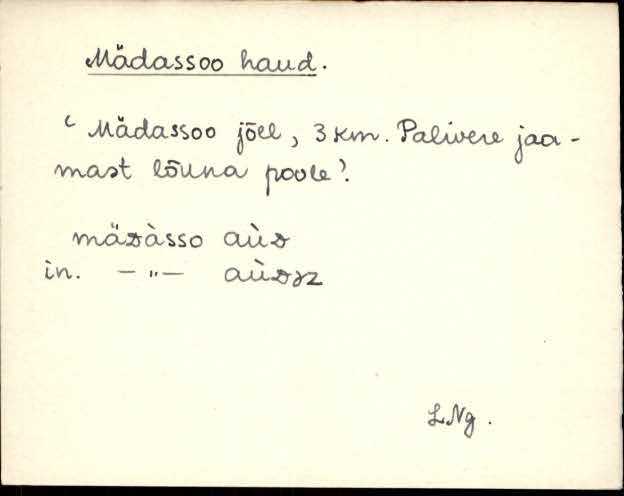 Mädassoo haud.
‘Mädassoo jõel, 3 km. Palivere jaa-
mast lõuna poole’.
mäᴅàsso aùᴅ
in. — „ — aùᴅᴣᴢ
LNg.